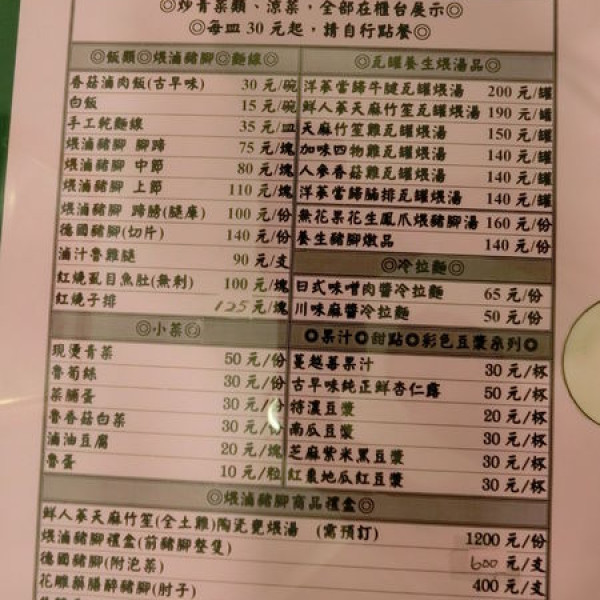 ◎炒青菜類、涼菜，全部在櫃台展示◎
◎每皿30元起，請自行點餐◎
◎飯類◎煨滷豬腳◎麵線◎
香菇滷肉飯(古早味) 30 元/碗
白飯 15 元/碗
手工乾麵線 35 元/皿
煨滷豬腳 腳蹄 75 元/塊
煨滷豬腳 中節 80 元/塊
煨滷豬腳 上節 110 元/塊
煨滷豬腳 蹄膀(腿庫) 100 元/份
德國豬腳(切片) 140 元/份
滷汁魯雞腿 90 元/支
紅燒虱目魚肚(無刺) 100 元/塊
紅燒子排 125 元/塊
◎小菜◎
現燙青菜 50 元/份
魯筍絲 30 元/份
菜脯蛋 30 元/份
魯香菇白菜 30 元/份
滷油豆腐 20 元/塊
魯蛋 10 元/粒
◎瓦罐養生煨湯品◎
洋蔘當歸牛腱瓦罐煨湯 200 元/罐
鮮人蔘天麻竹笙瓦罐煨湯 190 元/罐
天麻竹笙雞瓦罐煨湯 150 元/罐
加味四物雞瓦罐煨湯 140 元/罐
人參香菇雞瓦罐煨湯 140 元/罐
洋蔘當歸腩排瓦罐煨湯 140 元/罐
無花果花生鳳爪煨豬腳湯 160 元/份
養生豬腳燉品 140 元/份
◎冷拉麵◎
日式味噌肉醬冷拉麵 65 元/份
川味麻醬冷拉麵 50 元/份
◎果汁◎甜點◎彩色豆漿系列◎
蔓越莓果汁 30 元/杯
古早味純正鮮杏仁露 50 元/杯
特濃豆漿 20 元/杯
南瓜豆漿 30 元/杯
芝麻紫米黑豆漿 30 元/杯
紅棗地瓜紅豆漿 30 元/杯
◎煨滷豬腳商品禮盒◎
鮮人蔘天麻竹笙(全土雞)陶瓷甕煨湯 (需預訂) 1200 元/份
煨滷豬腳禮盒(前豬腳整隻) 600 元/支
德國豬腳(附泡菜) 400 元/支
花雕藥膳醉豬腳(肘子)